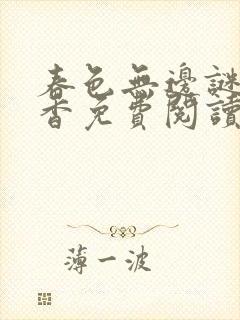 春色無邊謎
香免費閱讀
薄一波